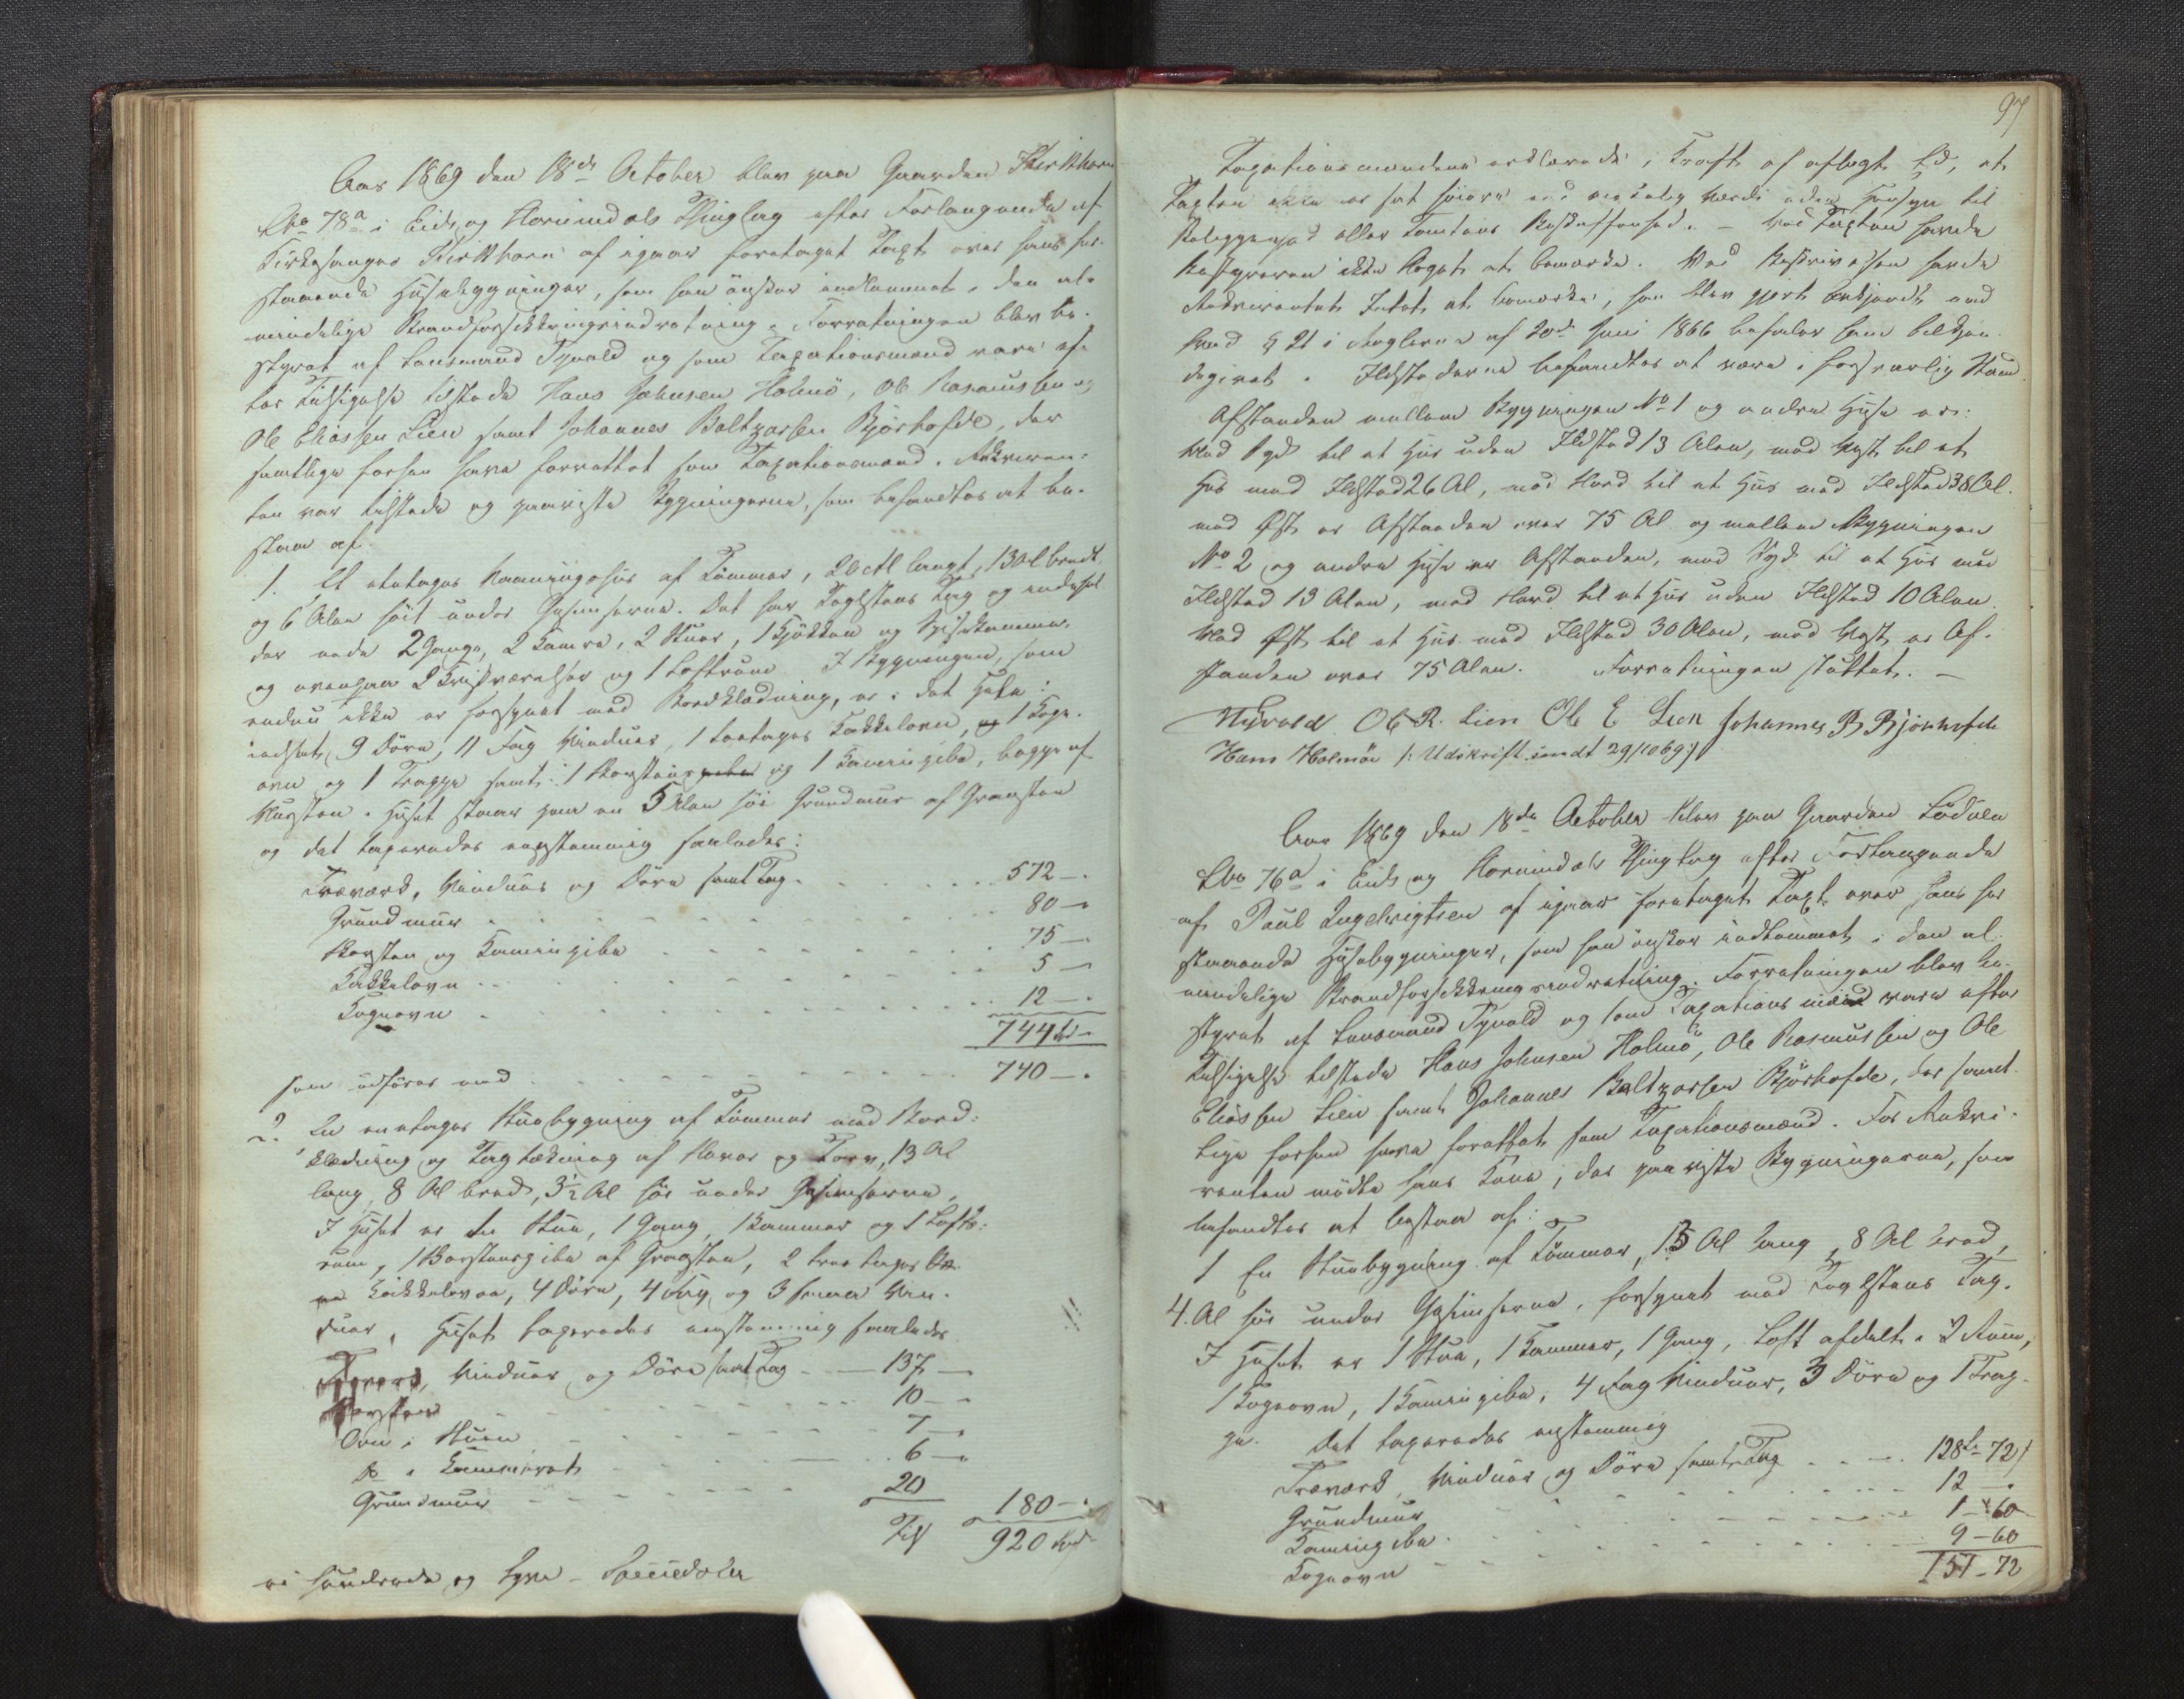 Aar 1869 den 18de October blev paa Gaarden Kirkhorn
Lbno 78a i Eids og Hornindals Thinglag efter Forlangende af
Kirkesanger Kirkhorn af igaar foretaget Taxt over hans her
staaende Husebygninger, som han ønsker indlemmet i den al-
mindelige Brandforsikkringsindretning. Forretningen blev be-
styret af Lensmand Nyvold og som Taxationsmænd vare ef-
ter Tilsigelse tilstede Hans Johnsen Holmö, Ole Rasmussen og
Ole Eliassen Lien samt Johannes Baltzersen Björhofde, der
samtlige forhen have forrettet som Taxationsmænd. Rekviren-
ten var tilstede og paaviste Bygningerne, som befandtes at be-
staae af.
1. Et etetages Vaaningshus af Tømmer, 20 Al langt, 13 Al bredt
og 6 Alen höit under Gesimserne. Det har Taglstens Tag og indehol-
der nede 2 Gange, 2 Kamre, 2 Stuer, 1 Kjökken og Spisekammer
og ovenpaa 2 Kvistværelser og 1 Loftrum I Bygningen, som
endnu ikke er forsynet med Bordklædning, er i det Hele:
indsat, 9 Döre, 11 Fag Vinduer, 1 toetages Kakkelovn, 1 Koge-
ovn og 1 Trappe samt: 1 Skorstens og 1 Kaminpibe, begge af
Mursten. Huset staar paa en 3 Alen höi Grundmur af Graasten
og det taxeredes enstemmig saaledes:
Træværk, Vinduer og Döre samt Tag 572 -
Grundmur 80 -
Skorsten og Kaminpibe 75 -
Kakkelovn 5 -
Kogeovn 12 -
744 Spd
som udføres med 740 -
2. En enetages Stuebygning af Tømmer med Bord-
klædning og Tagtækning af Næver og Torv, 13 Al
lang, 8 Al bred, 3½ Al höi under Gesimserne.
I Huset er en Stue, 1 Gang, 1 Kammer og 1 Lofts-
rum, 1 Skorstenspibe af Graasten, 2 toetages
Kakkelovne, 4 Döre, 4 Fag og 3 smaa Vin-
duer. Huset taxeredes enstemmig saaledes
Træværk, Vinduer og Döre samt Tag 137 -
Skorsten 10 -
Ovn i Stuen 7 -
Do i Kammeret 6 -
Grundmur 20 180 -
Til 920 Spd
ni hundrede og tyve - Speciedaler
97
Taxationsmændene erklærede i Kraft af aflagt Ed, at
Taxten ikke er sat höiere end virkelig Værdi uden Hensyn til
Beliggenhed eller Tomtens Beskaffenhed. - Ved Taxten havde
Bestyreren ikke Noget at bemærke. Ved Beskrivelsen havde
Rekvirenten Intet at bemærke, han blev gjort bekjendt med
hvad § 21 i Reglerne af 20de Juni 1866 befaler
Ildstederne befandtes at være i forsvarlig Stand.
Afstanden mellem Bygningen No 1 og andre Huse er:
Mod Syd til et Hus uden Ildsted 13 Alen, mod Vest til et
Hus med Ildsted 26 Al, mod Nord til et Hus med Ildsted 38 Al.
mod Øst er Afstanden over 75 Al og mellem Bygningen
No 2 og andre Huse er Afstanden, mod Syd til et Hus med
Ildsted 13 Alen, mod Nord til et Hus uden Ildsted 10 Alen.
Mod Øst til et Hus med Ildsted 30 Alen, mod Vest er Af-
standen over 75 Alen. Forretningen sluttet. -
Nyvold Ole R. Lien Ole E Lien Johannes B Björhofde
Hans Holmöe /: Udskrift sendt 29/10 69:/
Aar 1869 den 18de October blev paa Gaarden Lödöen
Lbno 76a i Eids og Hornindals Thinglag efter Forlangende
af Paul Ingebrigtsen af igaar foretaget Taxt over hans her
staaende Husebygninger, som han ønsker indlemmet i den al-
mindelige Brandforsikkringsindretning. Forretningen blev be-
styret af Lensmand Nyvold og som Taxationsmænd vare efter
Tilsigelse tilstede Hans Johnsen Holmö, Ole Rasmussen og Ole
Eliassen Lien samt Johannes Baltzersen Björhofde, der samt-
lige forhen have forrettet som Taxationsmænd. For Rekvi-
renten mödte hans Kone, der paaviste Bygningerne, som
befandtes at bestaa af:
1 En Stuebygning af Tömmer, 13 Al lang, 8 Al bred,
4 Al höi under Gesimserne, forsynet med Taglstens Tag.
I Huset er 1 Stue, 1 Kammer, 1 Gang, Loft afdelt i 2 Rum,
1 Kogeovn, 1 Kaminpibe, 4 Fag Vinduer, 3 Döre og 1 Trap-
pe. Det taxeredes enstemmig
Træværk, Vinduer og Döre samt Tag 128 - 72
Grundmur 12 -
Kaminpibe 1 - 60
Kogeovn 9 - 60
151 - 72